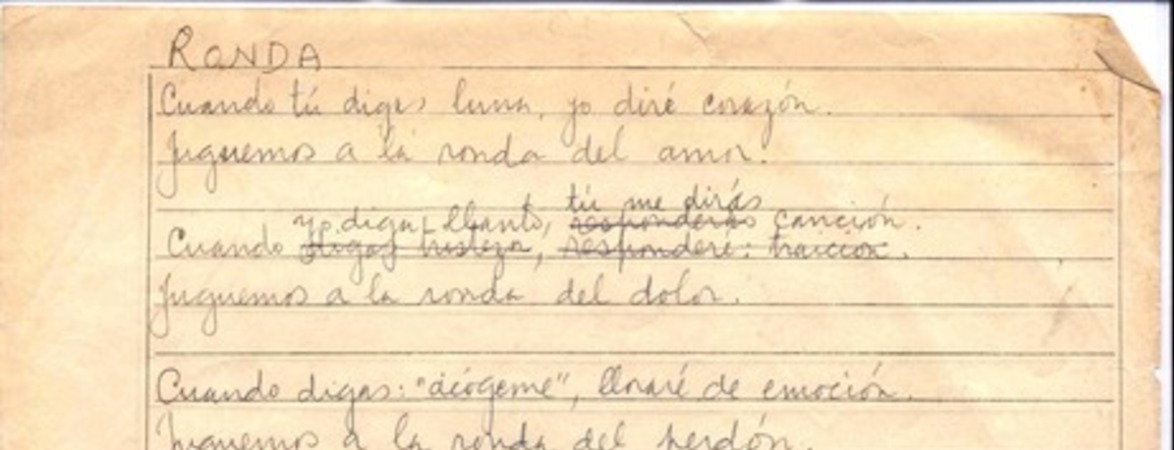 RONDA
Cuando tú digas luna, yo diré corazón.
Juguemos a la ronda del amor.
tú me dirás
yo diga llanto, responderás canción.
Cuando digas tristeza, responderé: traición.
Juguemos a la ronda del dolor.
Cuando digas: "acógeme", lloraré de emoción.
Juguemos a la ronda del perdón.